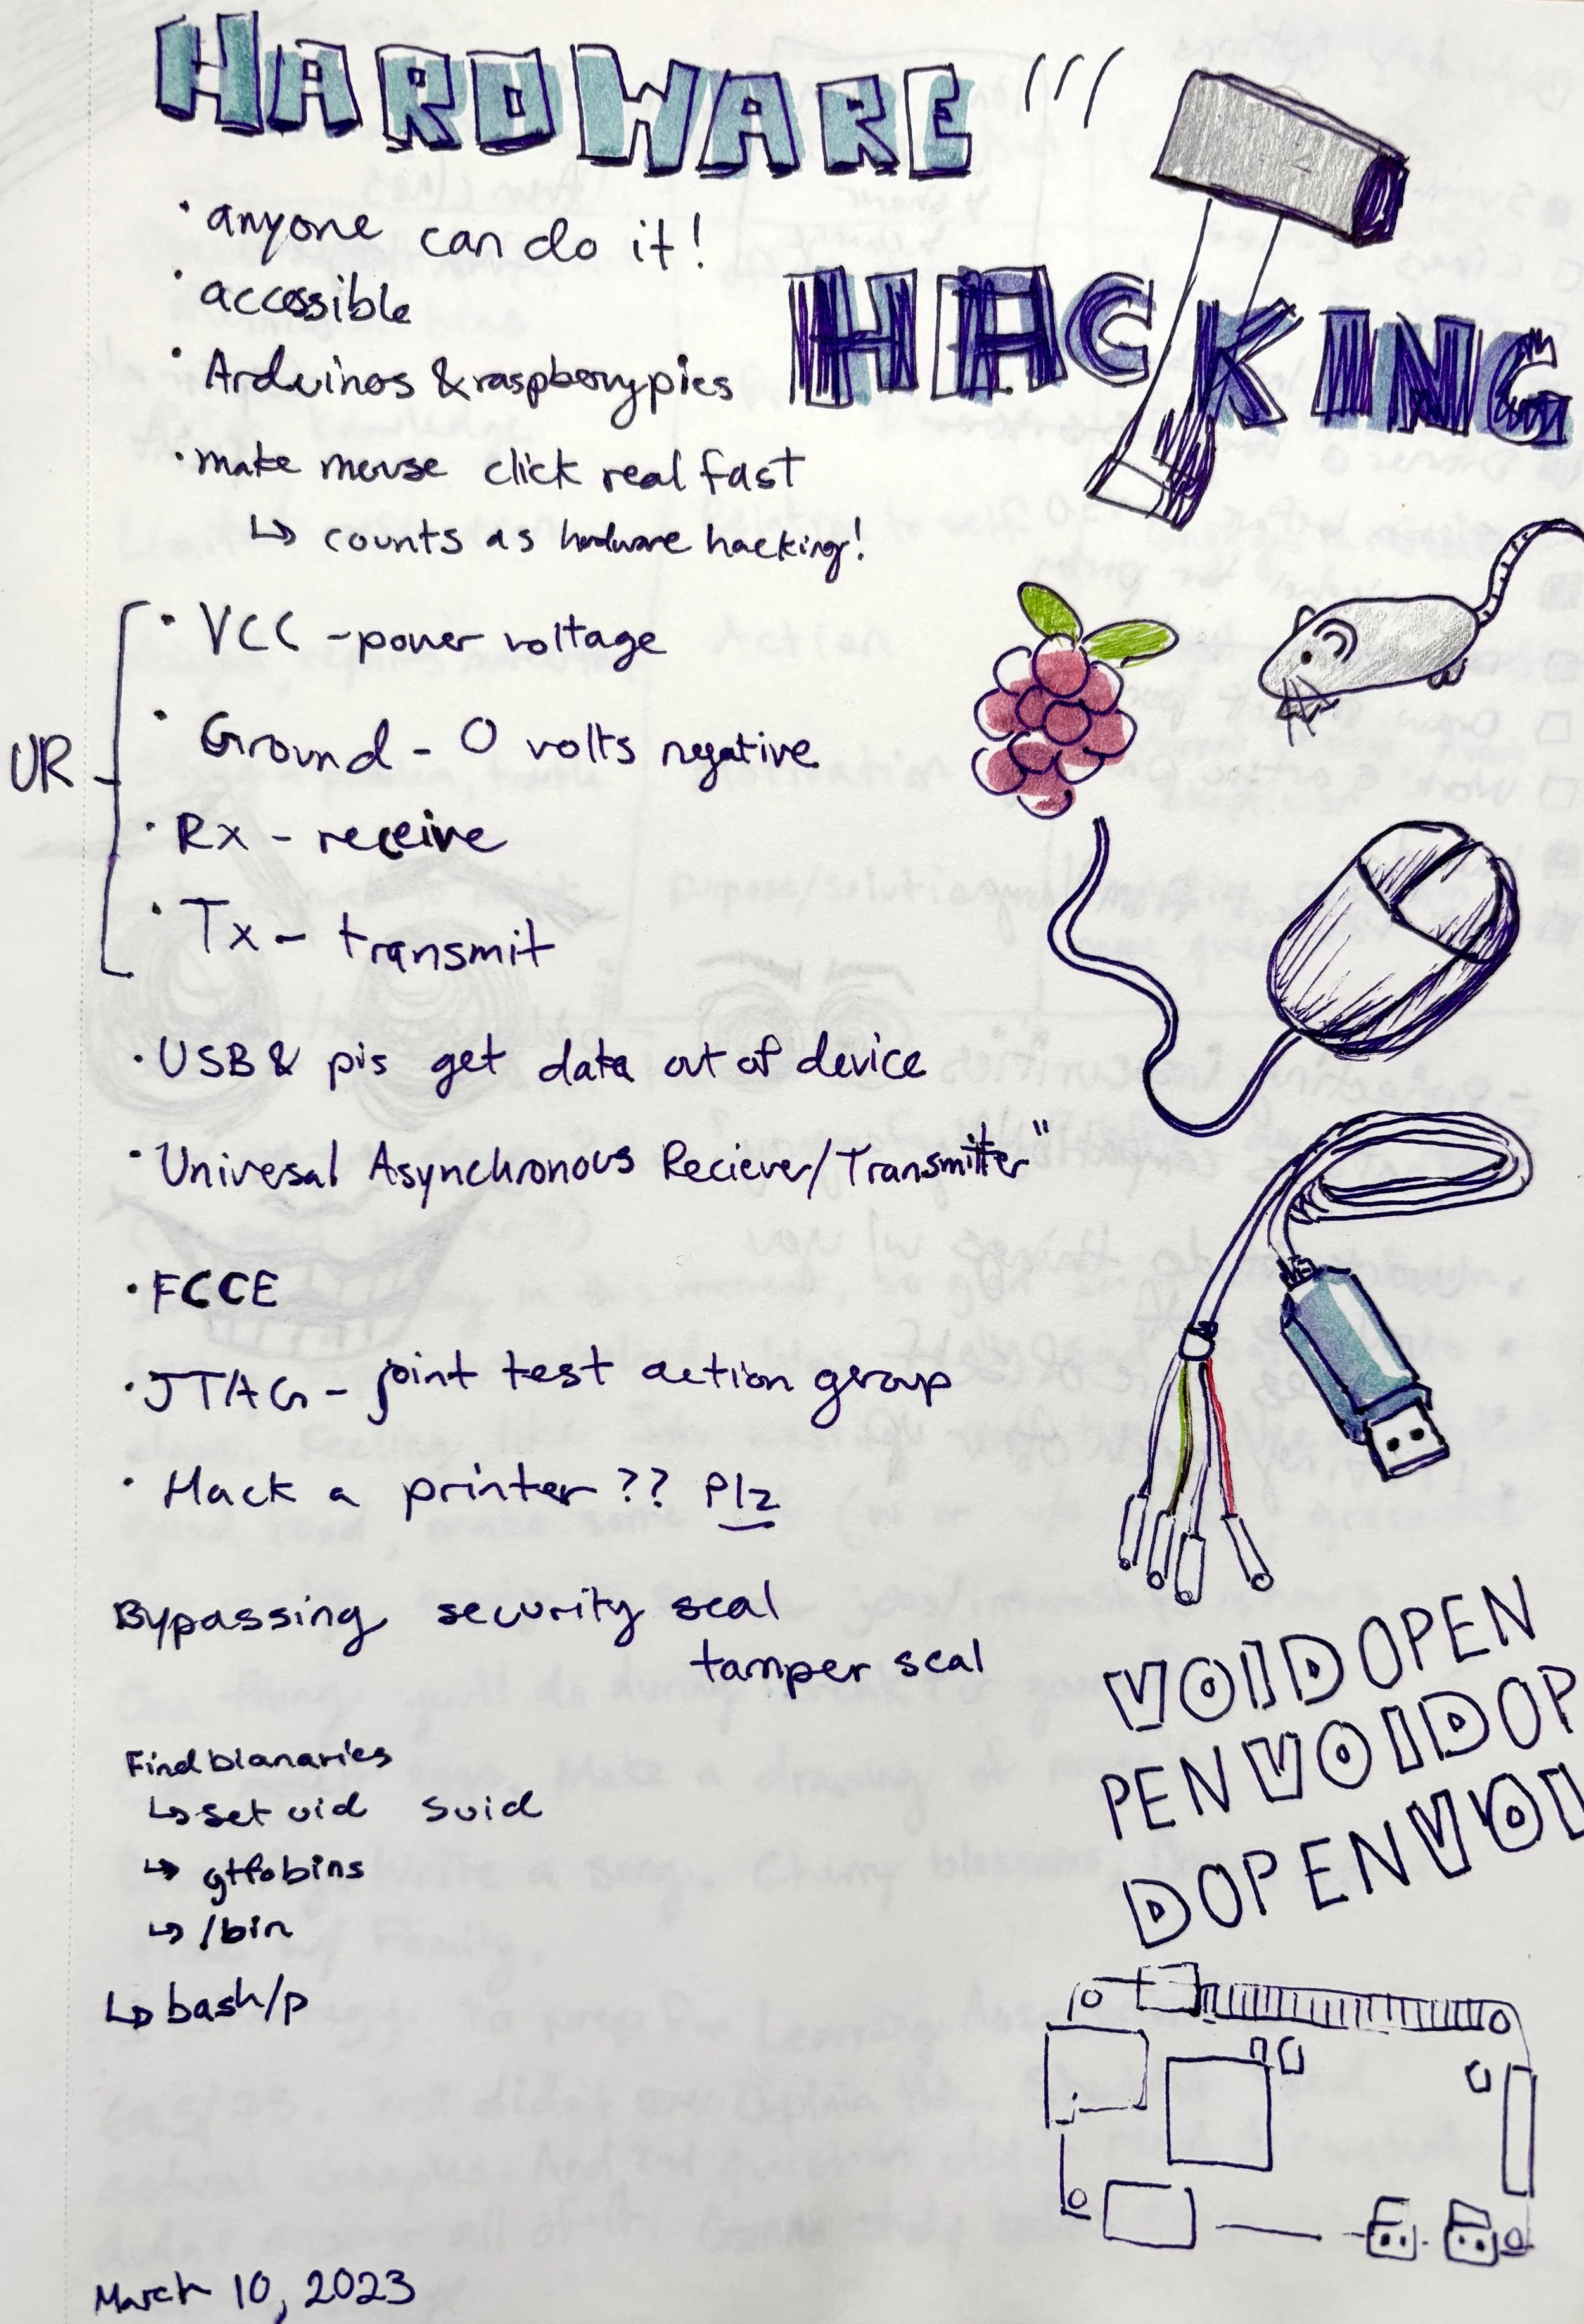 HARDWARE
HACKING
• anyone can do it!
• accessible
• Arduinos & raspberry pies
• make mouse click real fast
↳ counts as hardware hacking!
UR
• VCC - power voltage
• Ground - 0 volts negative
• Rx - receive
• Tx - transmit
• USB & pis get data out of device
• Universal Asynchronous Reciever/Transmitter"
• FCCE
• JTAG - joint test action group
• Hack a printer?? Plz
Bypassing security seal
tamper seal
VOIDOPEN
PENVOIDOP
DOPENVOI
Find bianaries
↳ set uid suid
↳ gtfobins
↳ /bin
↳ bash/p
March 10, 2023